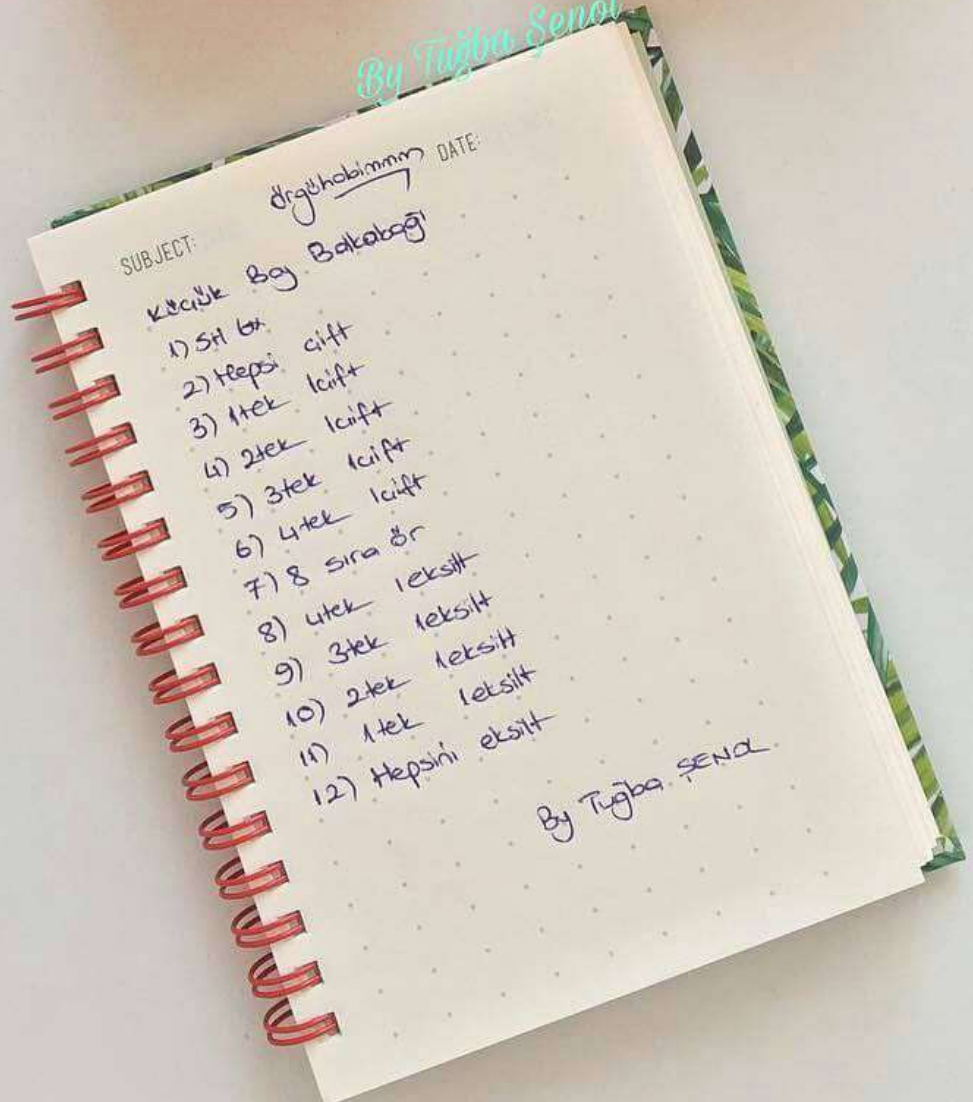 By Tuğba Şenol
örgühobimmm DATE:
SUBJECT:
Küçük Boy Balkabağı
1) SH 6x
2) Hepsi çift
3) 1tek 1çift
4) 2tek 1çift
5) 3tek 1çift
6) 4tek 1çift
7) 8 sıra ör
8) 4tek 1eksilt
9) 3tek 1eksilt
10) 2tek 1eksilt
11) 1tek 1eksilt
12) Hepsini eksilt
By Tuğba ŞENOL